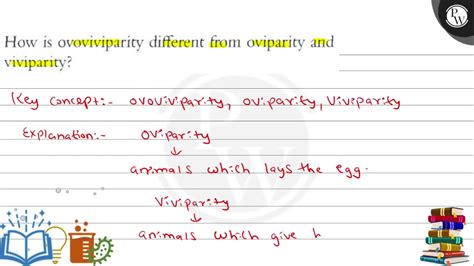 PW
How is ovoviviparity different from oviparity and
viviparity?
Key concept:- ovoviviparity, oviparity, viviparity
Explanation:- oviparity
↓
animals which lays the egg.
viviparity
↓
animals which give